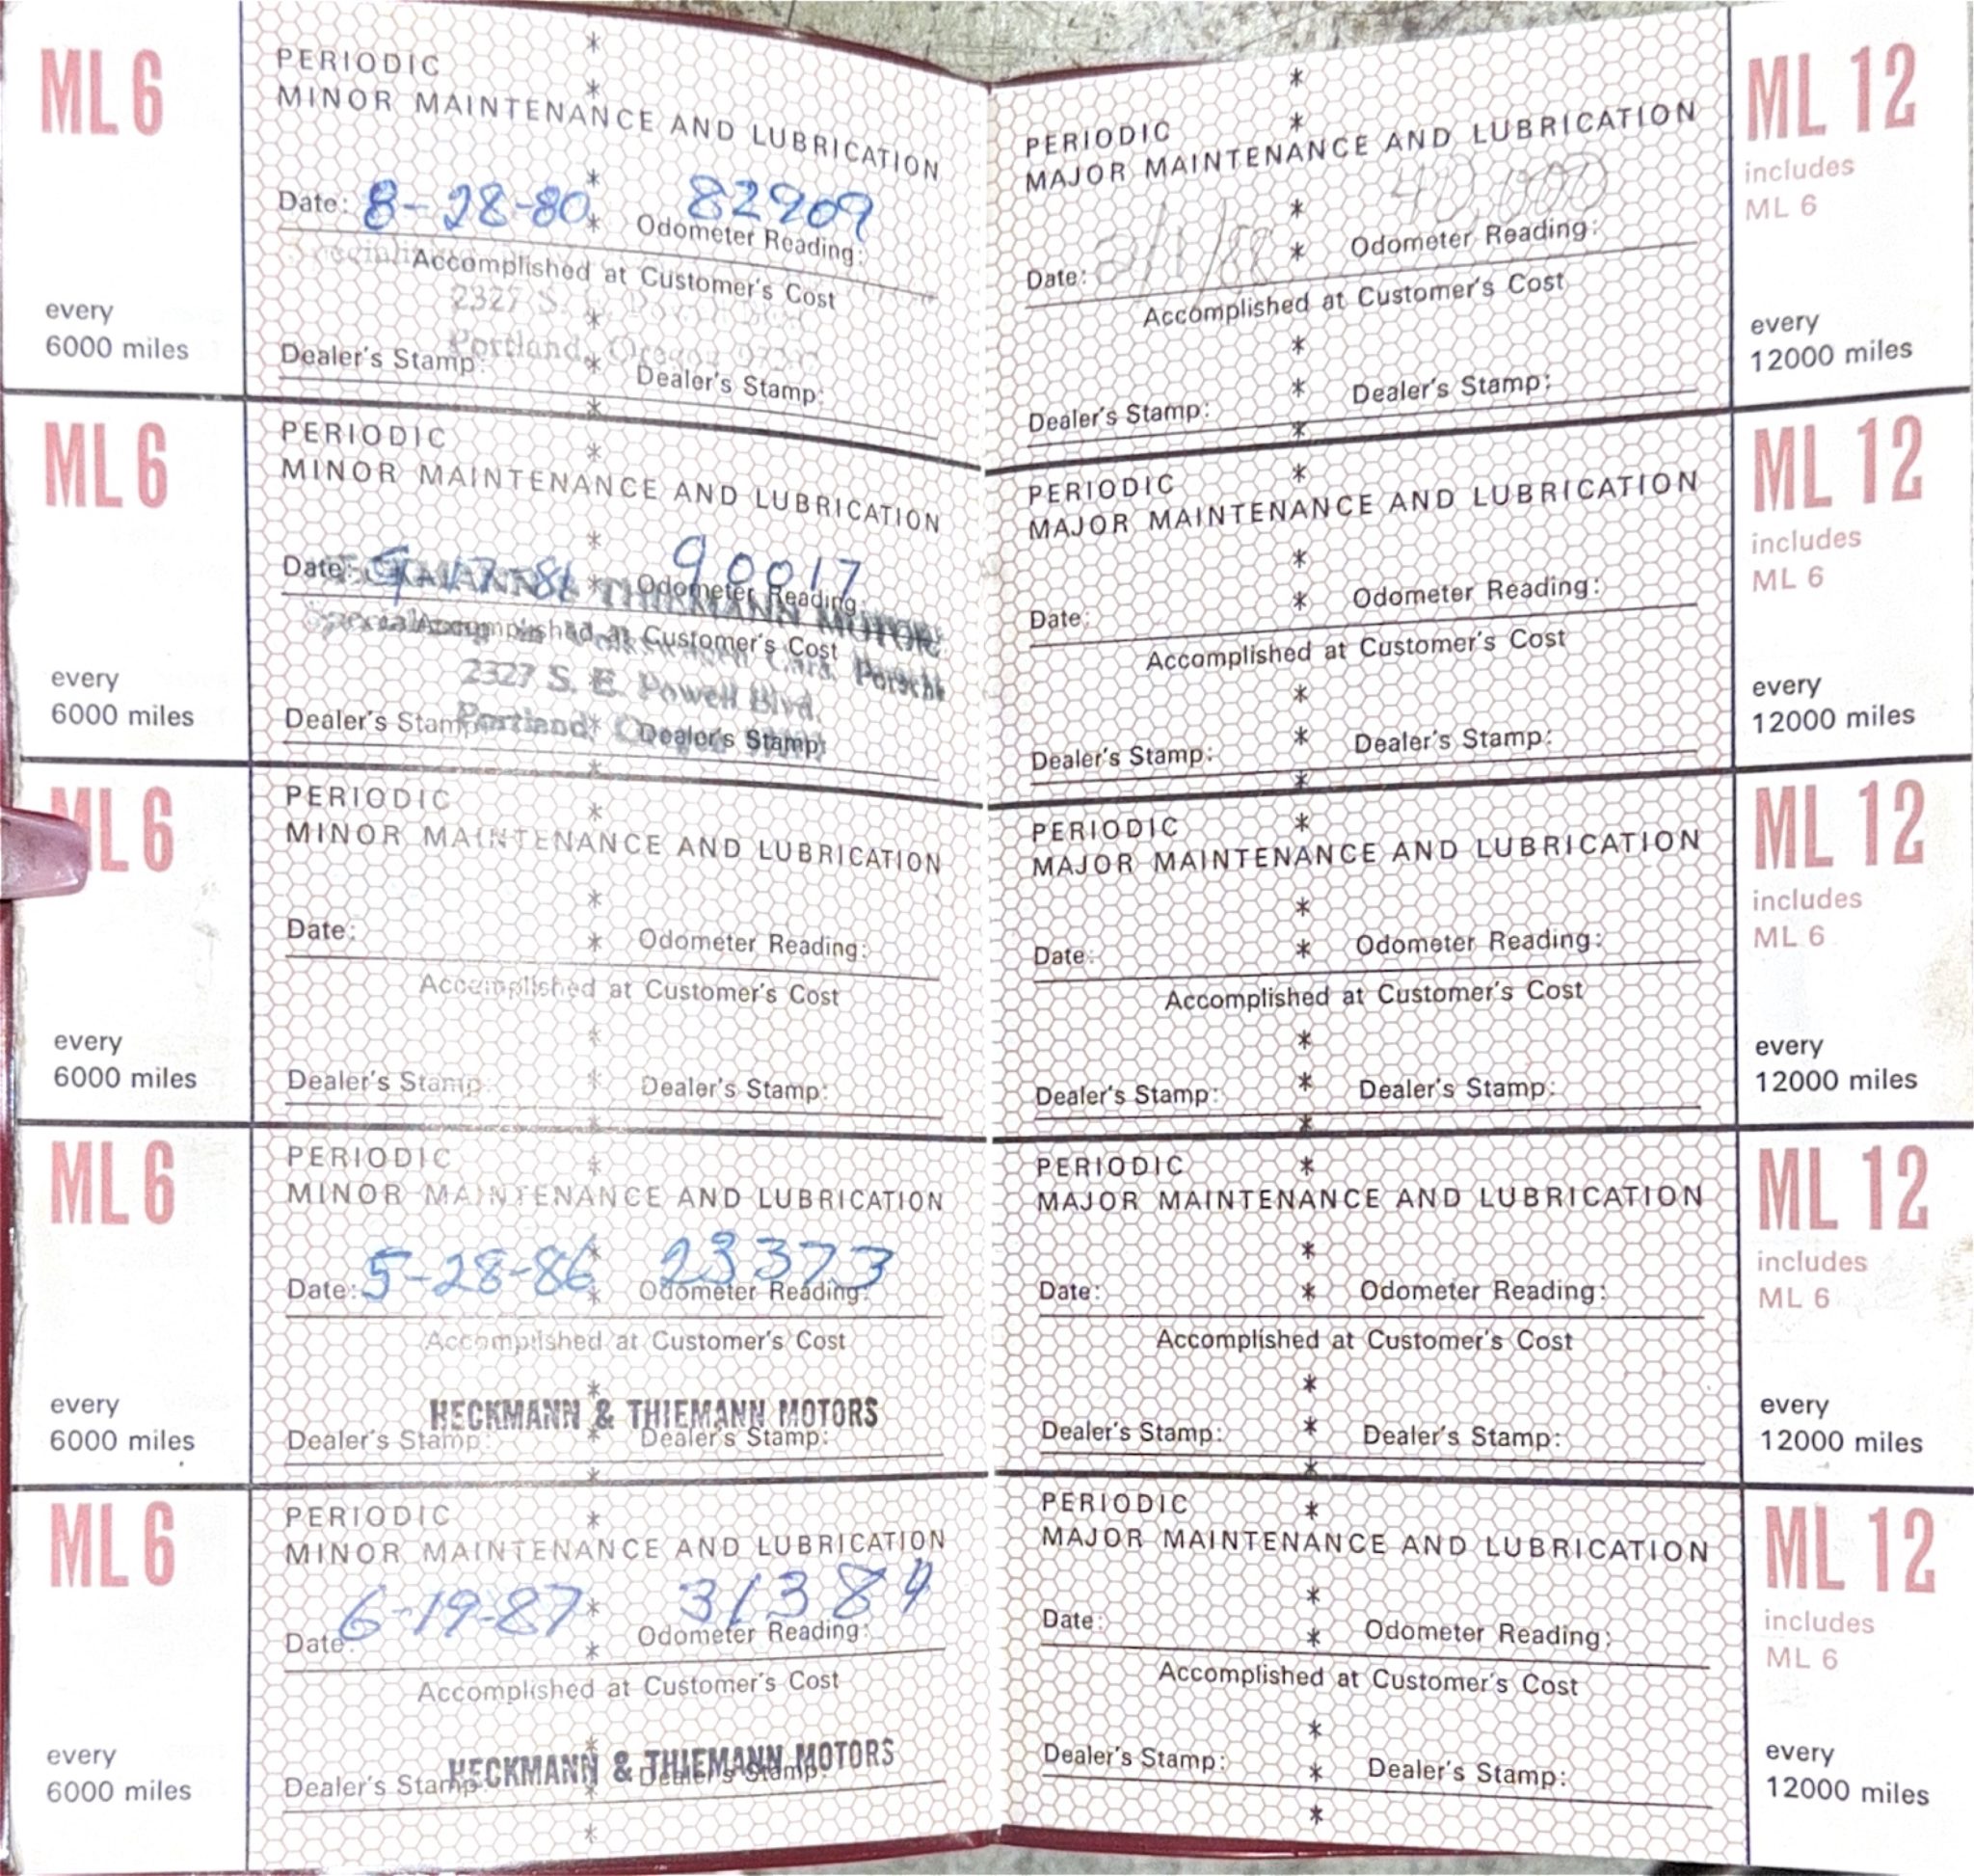 ML 6
every
6000 miles
PERIODIC
MINOR MAINTENANCE AND LUBRICATION
Date: 8-28-80 82909
Odometer Reading:
Accomplished at Customer's Cost
2327 S.
Portland, Oregon
Dealer's Stamp: Dealer's Stamp:
ML 6
every
6000 miles
PERIODIC
MINOR MAINTENANCE AND LUBRICATION
Date: 90017
Odometer Reading:
THIEMANN MOTORS
Accomplished at Customer's Cost
Cars, Porsche
2327 S. E. Powell Blvd.
Portland,
Dealer's Stamp: Dealer's Stamp:
ML 6
every
6000 miles
PERIODIC
MINOR MAINTENANCE AND LUBRICATION
Date: Odometer Reading:
Accomplished at Customer's Cost
Dealer's Stamp: Dealer's Stamp:
ML 6
every
6000 miles
PERIODIC
MINOR MAINTENANCE AND LUBRICATION
Date: 5-28-86 23373
Odometer Reading:
Accomplished at Customer's Cost
HECKMANN & THIEMANN MOTORS
Dealer's Stamp: Dealer's Stamp:
ML 6
every
6000 miles
PERIODIC
MINOR MAINTENANCE AND LUBRICATION
Date: 6-19-87 31384
Odometer Reading:
Accomplished at Customer's Cost
HECKMANN & THIEMANN MOTORS
Dealer's Stamp: Dealer's Stamp:
PERIODIC
MAJOR MAINTENANCE AND LUBRICATION
40,000
Date: 2/1/88 Odometer Reading:
Accomplished at Customer's Cost
Dealer's Stamp: Dealer's Stamp:
ML 12
includes
ML 6
every
12000 miles
PERIODIC
MAJOR MAINTENANCE AND LUBRICATION
Date: Odometer Reading:
Accomplished at Customer's Cost
Dealer's Stamp: Dealer's Stamp:
ML 12
includes
ML 6
every
12000 miles
PERIODIC
MAJOR MAINTENANCE AND LUBRICATION
Date: Odometer Reading:
Accomplished at Customer's Cost
Dealer's Stamp: Dealer's Stamp:
ML 12
includes
ML 6
every
12000 miles
PERIODIC
MAJOR MAINTENANCE AND LUBRICATION
Date: Odometer Reading:
Accomplished at Customer's Cost
Dealer's Stamp: Dealer's Stamp:
ML 12
includes
ML 6
every
12000 miles
PERIODIC
MAJOR MAINTENANCE AND LUBRICATION
Date: Odometer Reading:
Accomplished at Customer's Cost
Dealer's Stamp: Dealer's Stamp:
ML 12
includes
ML 6
every
12000 miles